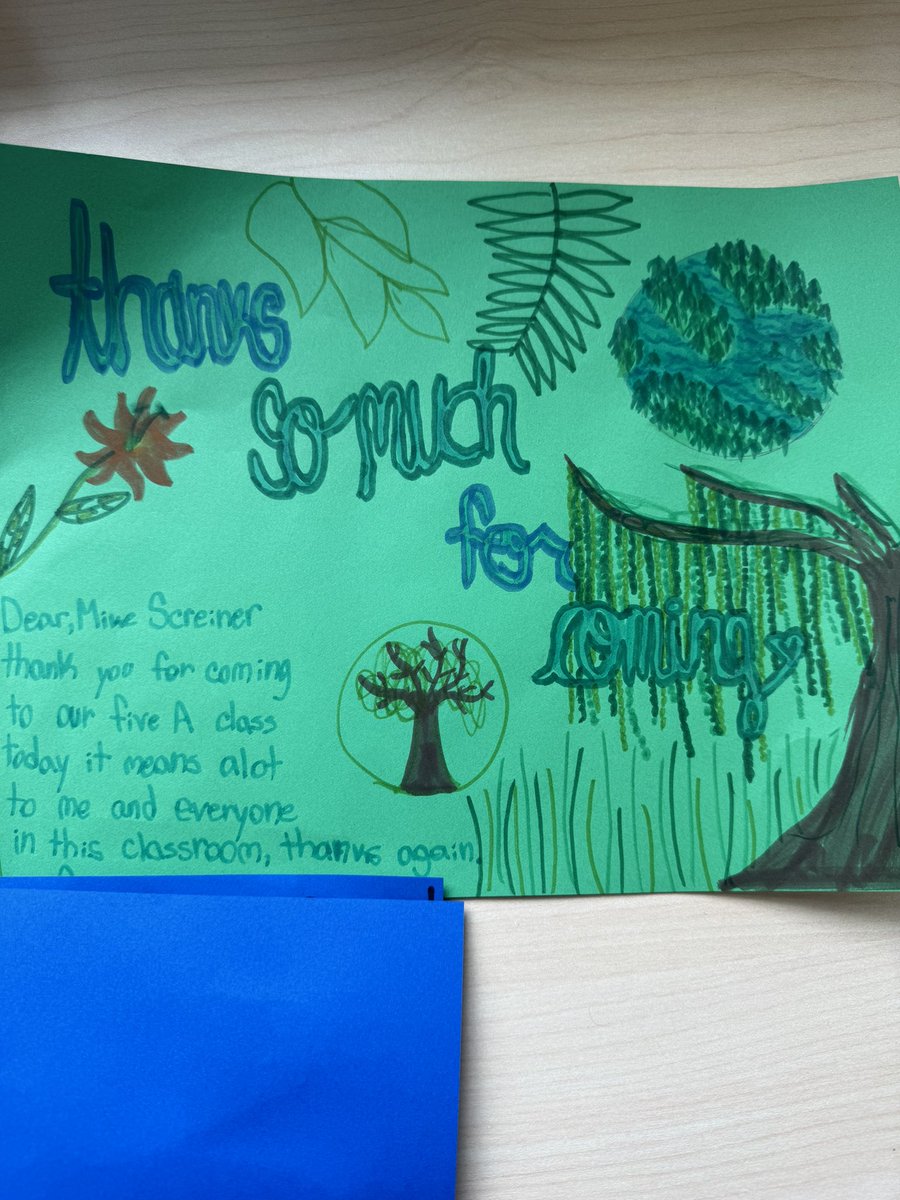 thanks
so much
for
coming
Dear, Mike Screiner
thank you for coming
to our five A class
today it means alot
to me and everyone
in this classroom, thanks again,